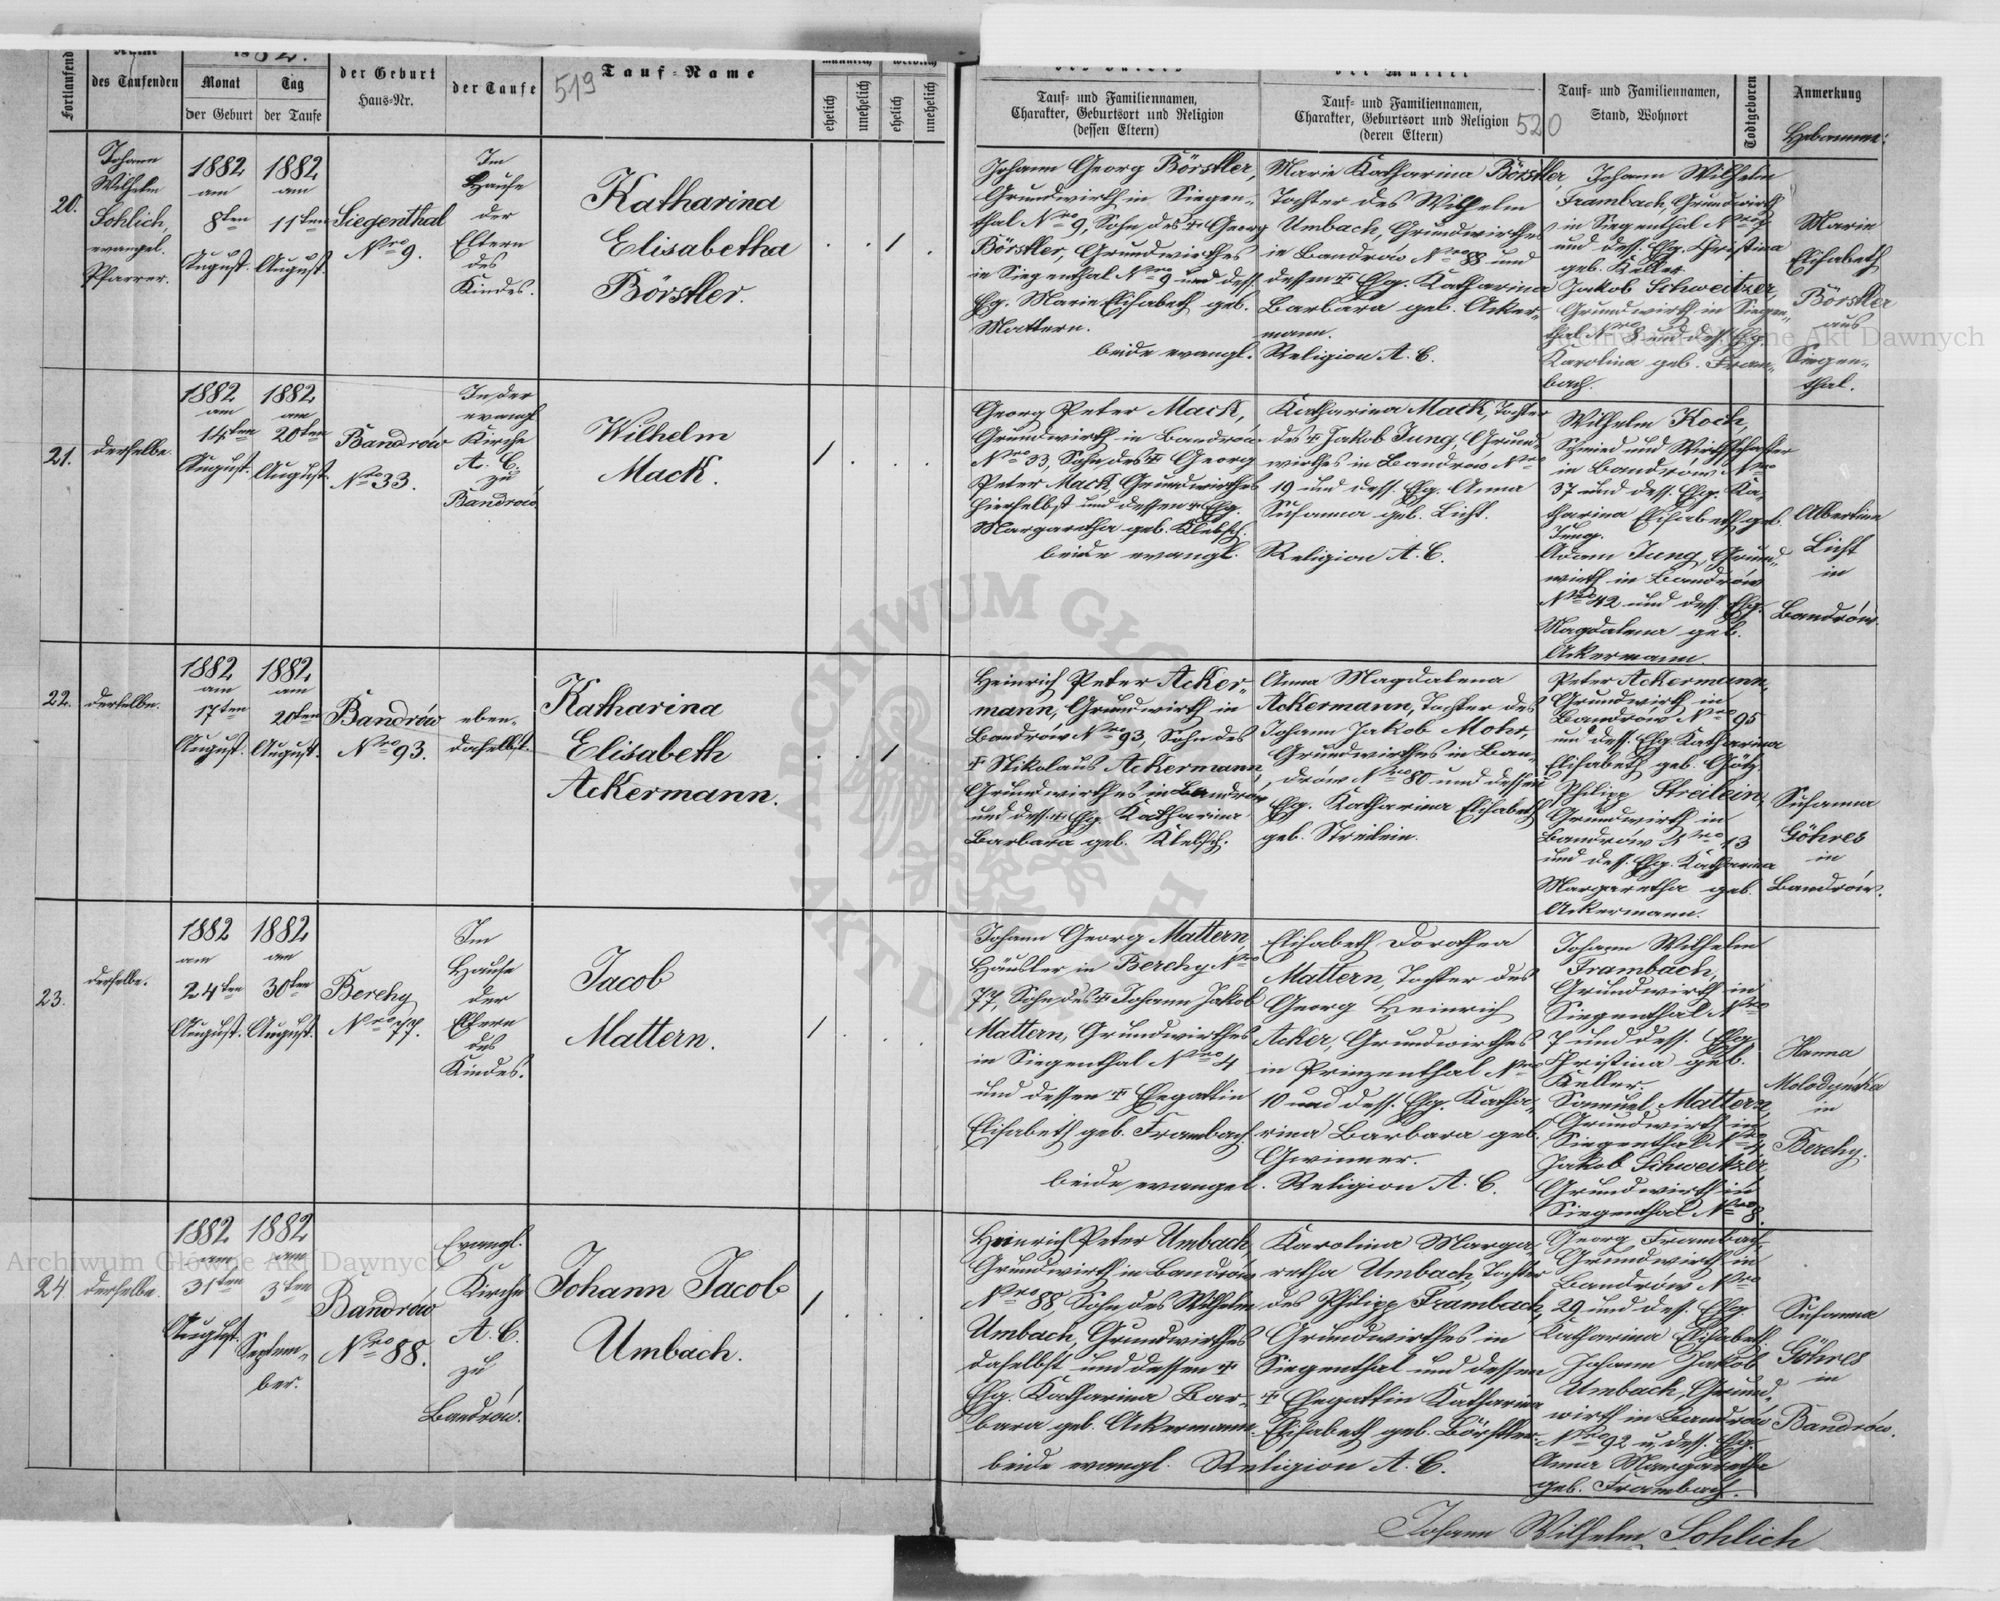 Fortlaufend
des Taufenden
Monat
der Geburt
Tag
der Taufe
der Geburt
Haus-Nr.
der Taufe
519
Tauf-Name
ehelich
unehelich
ehelich
unehelich
Tauf- und Familiennamen,
Charakter, Geburtsort und Religion
(dessen Eltern)
Tauf- und Familiennamen,
Charakter, Geburtsort und Religion
(deren Eltern)
520
Tauf- und Familiennamen,
Stand, Wohnort
Todtgeboren
Anmerkung
Hebamme:
20.
Johann
Wilhelm
Sohlich,
evangel.
Pfarrer.
1882
am
8ten
August.
1882
am
11ten
August.
Siegenthal
Nro 9.
Im
Hause
der
Eltern
des
Kindes.
Katharina
Elisabetha
Börstler.
Johann Georg Börstler,
Grundwirth in Siegen-
thal Nro 9, Sohn des † Georg
Börstler, Grundwirthes
in Siegenthal Nro 9 und dess.
Ehg. Marie Elisabeth geb.
Mattern.
beide evangl.
Marie Katharina Börstler,
Tochter des Wilhelm
Umbach, Grundwirthes
in Bandrów Nro 88 und
dessen † Ehg. Katharina
Barbara geb. Acker-
mann.
Religion A. C.
Johann Wilhelm
Frambach, Grundwirth
in Siegenthal Nro 7
und dess. Ehg. Christina
geb. Keller
Jakob Schweitzer,
Grundwirth in Siegen-
thal Nro 8 und dess. Ehg.
Karolina geb. Fram-
bach.
Marie
Elisabeth
Börstler
aus
Siegen-
thal.
21.
derselbe.
1882
am
14ten
August.
1882
am
20ten
August.
Bandrów
Nro 33.
In der
evangl.
Kirche
A. C.
zu
Bandrów.
Wilhelm
Mack.
Georg Peter Mack,
Grundwirth in Bandrów
Nro 33, Sohn des † Georg
Peter Mack Grundwirthes
hierselbst und dessen † Ehg.
Margaretha geb. Klebsch.
beide evangl.
Katharina Mack, Tochter
des † Jakob Jung, Grund-
wirthes in Bandrów Nro
19 und dess. Ehg. Anna
Susanna geb. Licht.
Religion A. C.
Wilhelm Koch,
Schmied und Wirthschafter
in Bandrów Nro
37 und dess. Ehg. Ka-
tharina Elisabeth geb.
Jung.
Adam Jung, Grund-
wirth in Bandrów
Nro 42 und dess. Ehg.
Magdalena geb.
Ackermann.
Albertine
Licht
in
Bandrów.
22.
derselbe.
1882
am
17ten
August.
1882
am
20ten
August.
Bandrów
Nro 93.
eben-
daselbst.
Katharina
Elisabeth
Ackermann.
Heinrich Peter Acker-
mann, Grundwirth in
Bandrów Nro 93, Sohn des
† Nikolaus Ackermann,
Grundwirthes in Bandrów
und dess. † Ehg. Katharina
Barbara geb. Klebsch.
Anna Magdalena
Ackermann, Tochter des
Johann Jakob Mohr,
Grundwirthes in Ban-
drów Nro 80 und dessen
Ehg. Katharina Elisabeth
geb. Streilein.
Peter Ackermann,
Grundwirth in
Bandrów Nro 95
und dess. Ehg. Katharina
Elisabeth geb. Götz.
Philipp Streilein,
Grundwirth in
Bandrów Nro 13
und dess. Ehg. Katharina
Margaretha geb.
Ackermann.
Susanna
Göhres
in
Bandrów.
23.
derselbe.
1882
am
24ten
August.
1882
am
30ten
August.
Berehy
Nro 77.
Im
Hause
der
Eltern
des
Kindes.
Jacob
Mattern.
Johann Georg Mattern,
Häusler in Berehy Nro
77, Sohn des † Johann Jakob
Mattern, Grundwirthes
in Siegenthal Nro 4
und dessen † Ehegattin
Elisabeth geb. Frambach.
beide evangel.
Elisabeth Dorothea
Mattern, Tochter des
Georg Heinrich
Acker, Grundwirthes
in Prinzenthal Nro
10 und dess. Ehg. Katha-
rina Barbara geb.
Gwinner.
Religion A. C.
Johann Wilhelm
Frambach,
Grundwirth in
Siegenthal Nro
7 und dess. Ehg.
Christina geb.
Keller.
Samuel Mattern,
Grundwirth in
Siegenthal Nro 4,
Jakob Schweitzer,
Grundwirth in
Siegenthal Nro 8.
Hanna
Molodyńska
in
Berehy.
24
derselbe.
1882
am
31ten
August.
1882
am
3ten
Septem-
ber.
Bandrów
Nro 88.
Evangl.
Kirche
A. C.
zu
Bandrów.
Johann Jacob
Umbach.
Heinrich Peter Umbach,
Grundwirth in Bandrów
Nro 88 Sohn des Wilhelm
Umbach, Grundwirthes
daselbst und dessen †
Ehg. Katharina Bar-
bara geb. Ackermann.
beide evangl.
Karolina Marga-
retha Umbach, Tochter
des Philipp Frambach,
Grundwirthes in
Siegenthal und dessen
† Ehegattin Katharina
Elisabeth geb. Börstler.
Religion A. C.
Georg Frambach
Grundwirth in
Bandrów Nro
29 und dess. Ehg
Katharina Elisabeth
Johann Jakob
Umbach, Grund-
wirth in Bandrów
Nro 92 u. dess. Ehg.
Anna Margaretha
geb. Frambach.
Susanna
Göhres
in
Bandrów.
Johann Wilhelm Sohlich
Archiwum Główne Akt Dawnych
Archiwum Główne Akt Dawnych